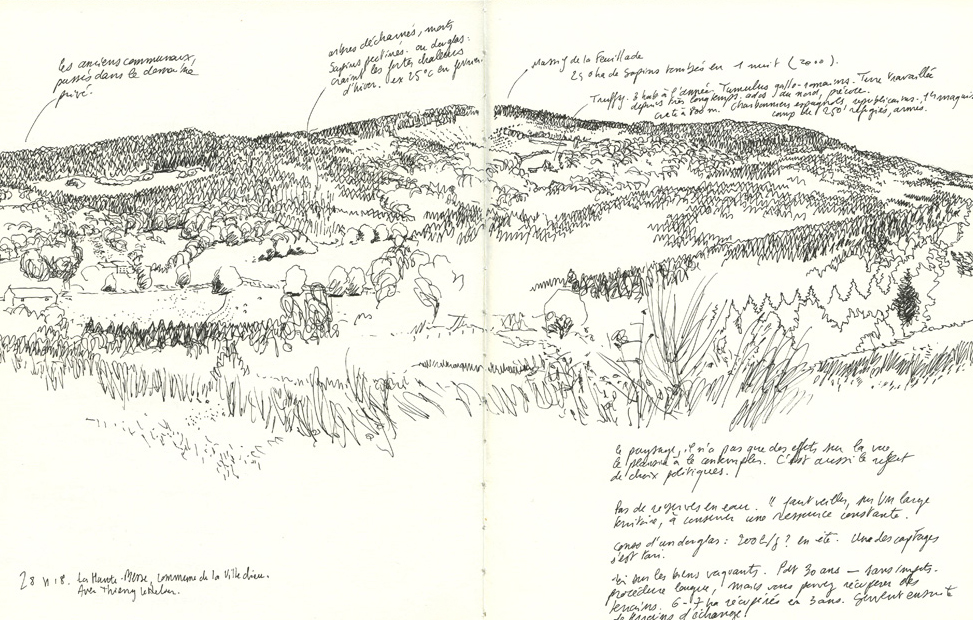 les anciens communaux,
passés dans le domaine
privé.
arbres décharnés, morts
Sapins pectinés. ou douglas:
craint les fortes chaleurs
d'hiver. (ex 25°C en février.
Massif de la Feuillade
250 ha de Sapins tombés en 1 nuit (2000).
Truffy. 3 hab à l'année. Tumulus gallo-romains. Terre travaillée
depuis très longtemps. ados du nord, précoce.
crête à 800m. Charbonniers espagnols, républicains., 1 maquis
camp de 250 réfugiés, armés.
le paysage, il n'a pas que des effets sur la vue
le plaisir à le contempler. C'est aussi le reflet
de choix politiques.
Pas de réserves en eau. Il faut veiller, sur un large
territoire, à conserver une ressource constante.
conso d'un douglas: 200 l/j? en été. Un des captages
s'est tari.
sur les biens vaquants. Pdt 30 ans — sans impôts.
procédure longue, mais vous pouvez récupérer des
terrains. 6-7 ha récupérés en 3 ans. Servent ensuite
de terrains d'échange!
28 VI 18. La Haute-Besse, commune de la Villedieu.
Avec Thierry